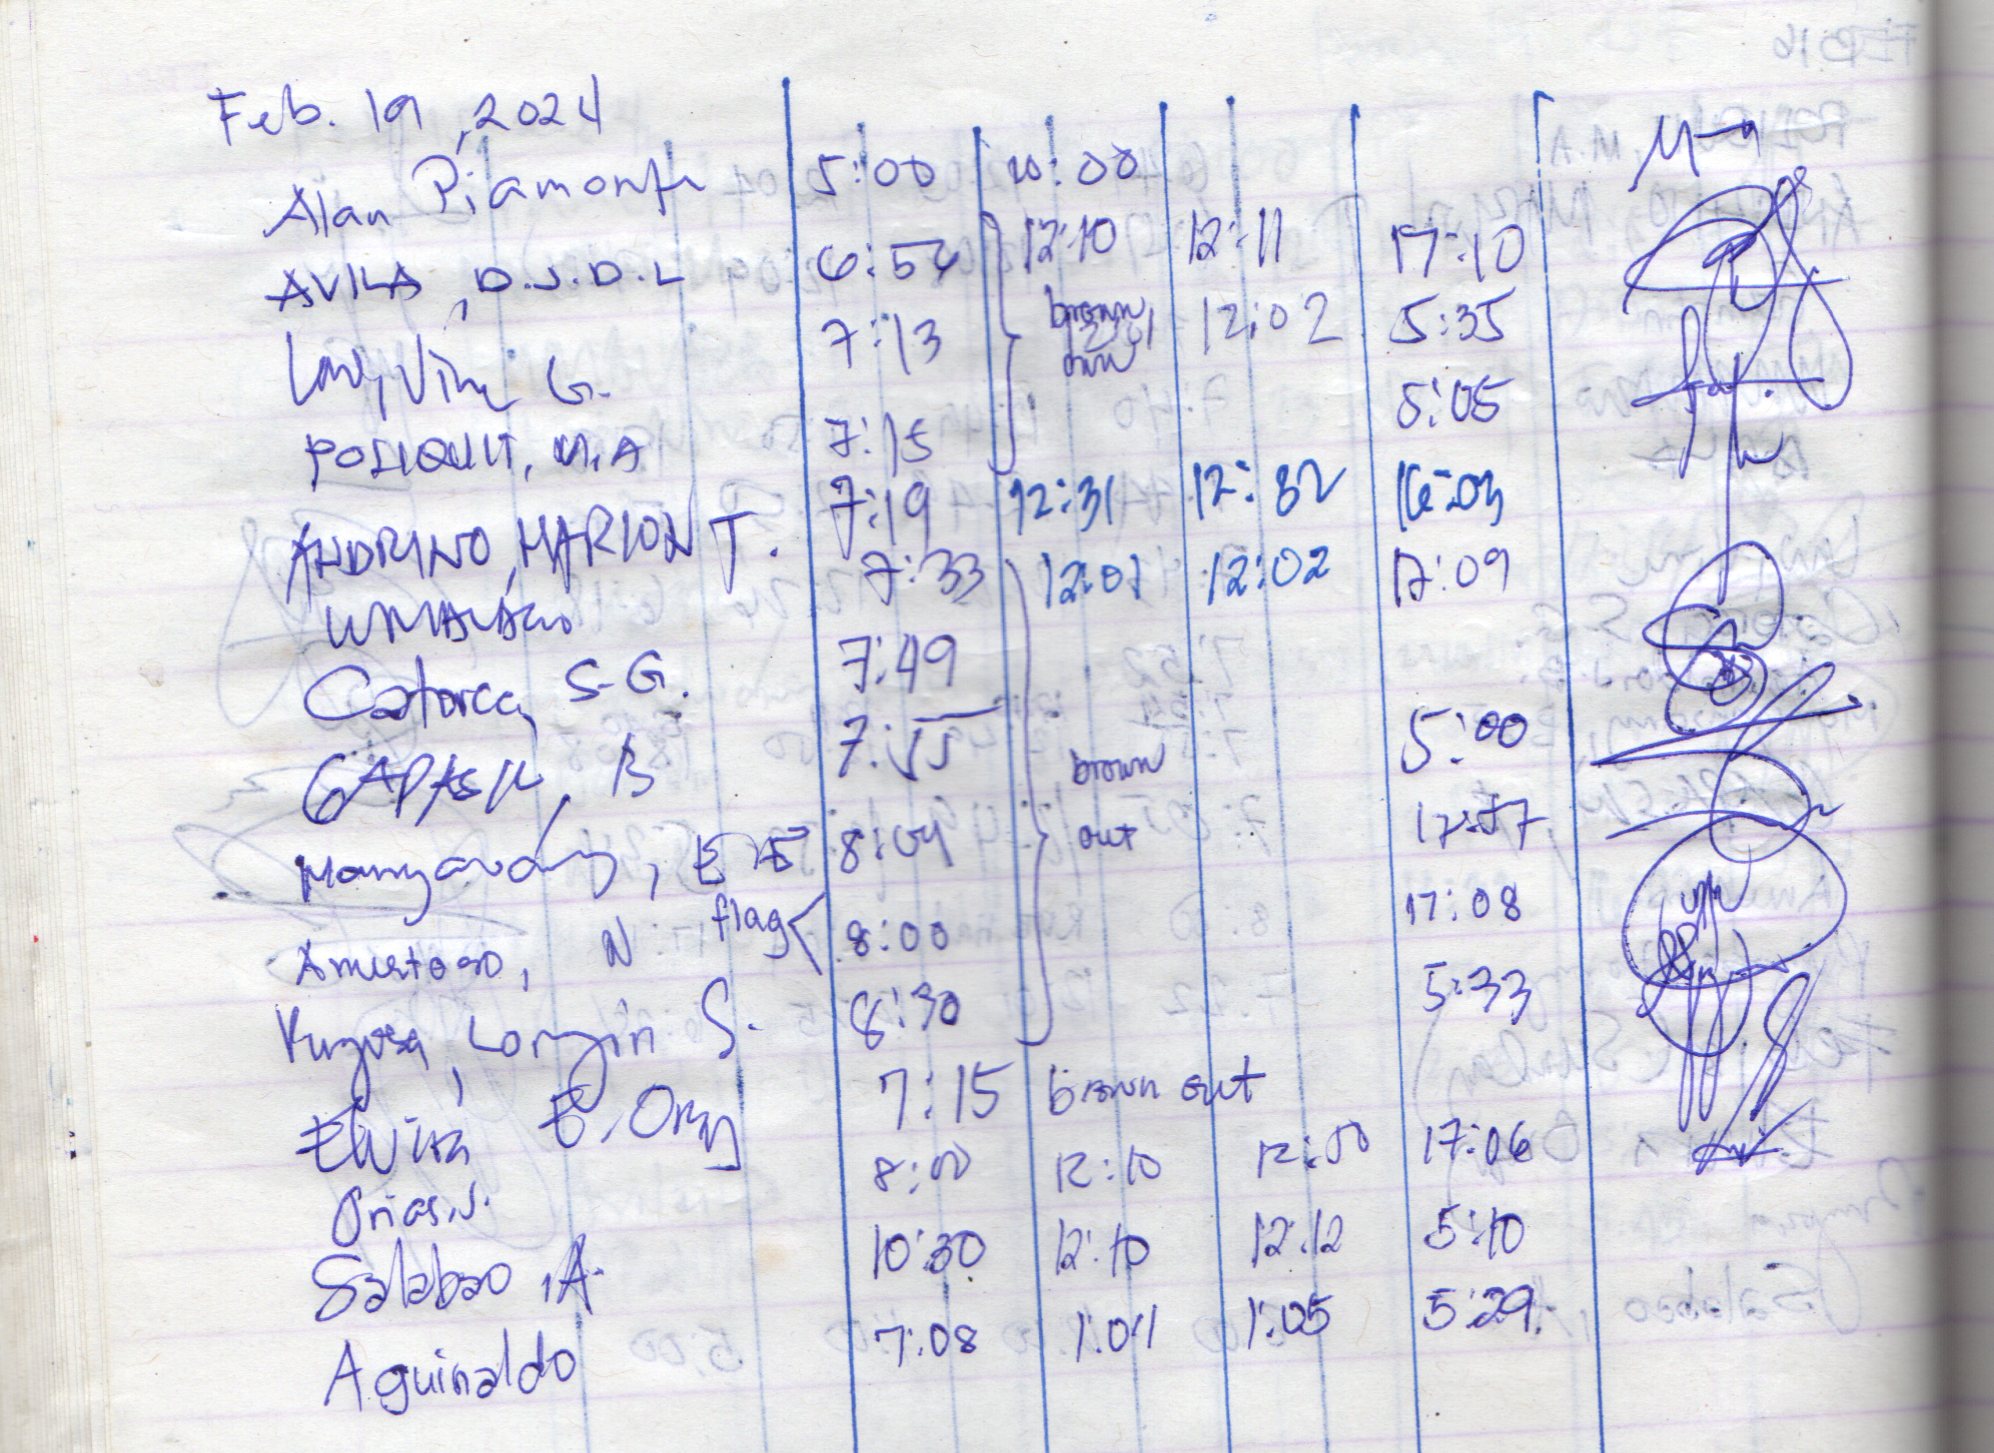 Feb. 19, 2024
Alan Piamonte 5:00 10:00
AVILA, D.J.D.L 6:54 12:10 12:11 17:10
G. 7:13 brown out 12:01 12:02 5:35
POLIQUIT, M.A 7:15 5:05
ANDRINO, MARION T. 7:19 12:31 12:32 16:03
7:33 12:01 12:02 17:09
Catorce, S.G. 7:49
GAPASIN, B 7:55 brown 5:00
8:04 out 17:57
Amestoso, N flag 8:00 17:08
Lorgin S. 8:30 5:33
Elvira E. Oray 7:15 brown out
Prias, J. 8:00 12:10 12:50 17:06
Salabao, A. 10:30 12:10 12:12 5:10
Aguinaldo 7:08 1:04 1:05 5:29